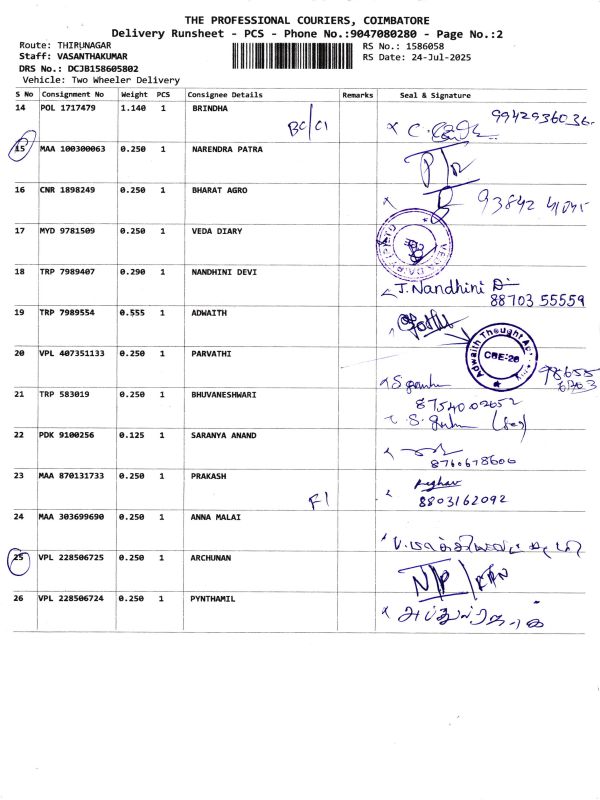 THE PROFESSIONAL COURIERS, COIMBATORE
Delivery Runsheet - PCS - Phone No.:9047080280 - Page No.:2
Route: THIRUNAGAR
RS No.: 1586058
Staff: VASANTHAKUMAR
RS Date: 24-Jul-2025
DRS No.: DCJB158605802
Vehicle: Two Wheeler Delivery
S No Consignment No Weight PCS Consignee Details Remarks Seal & Signature
14 POL 1717479 1.140 1 BRINDHA BC/C1 9942936036
15 MAA 100300063 0.250 1 NARENDRA PATRA
16 CNR 1898249 0.250 1 BHARAT AGRO 93842
17 MYD 9781509 0.250 1 VEDA DIARY
18 TRP 7989407 0.290 1 NANDHINI DEVI J. Nandhini D
88703 55559
19 TRP 7989554 0.555 1 ADWAITH Adwaith Thought CBE-28
20 VPL 407351133 0.250 1 PARVATHI 98655
21 TRP 583019 0.250 1 BHUVANESHWARI 8754002652
22 PDK 9100256 0.125 1 SARANYA ANAND 8760678606
23 MAA 870131733 0.250 1 PRAKASH F1 Raghav
8803162092
24 MAA 303699690 0.250 1 ANNA MALAI
25 VPL 228506725 0.250 1 ARCHUNAN N/P
26 VPL 228506724 0.250 1 PYNTHAMIL